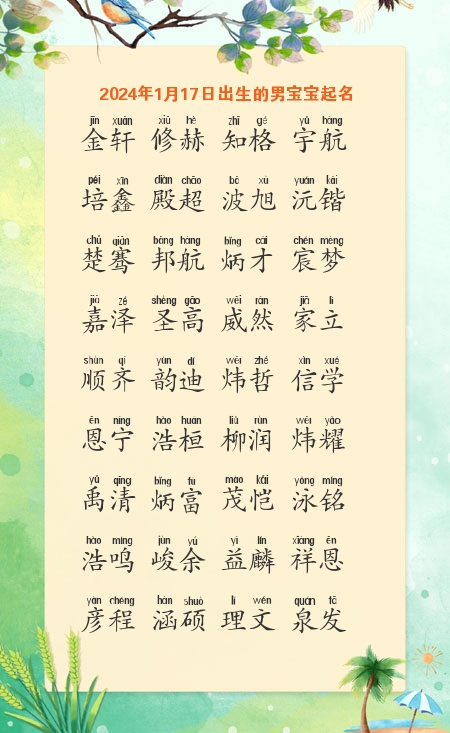 2024年1月17日出生的男宝宝起名
jīn xuān xiū hè zhī gé yǔ háng
金轩 修赫 知格 宇航
péi xīn diàn chāo bō xù yuán kǎi
培鑫 殿超 波旭 沅锴
chǔ qiān bāng háng bǐng cái chén mèng
楚骞 邦航 炳才 宸梦
jiā zé shèng gāo wēi rán jiā lì
嘉泽 圣高 威然 家立
shùn qí yùn dí wěi zhé xìn xué
顺齐 韵迪 炜哲 信学
ēn níng hào huán liǔ rùn wěi yào
恩宁 浩桓 柳润 炜耀
yǔ qīng bǐng fù mào kǎi yǒng míng
禹清 炳富 茂恺 泳铭
hào míng jùn yú yì lín xiáng ēn
浩鸣 峻余 益麟 祥恩
yàn chéng hán shuò lǐ wén quán fā
彦程 涵硕 理文 泉发